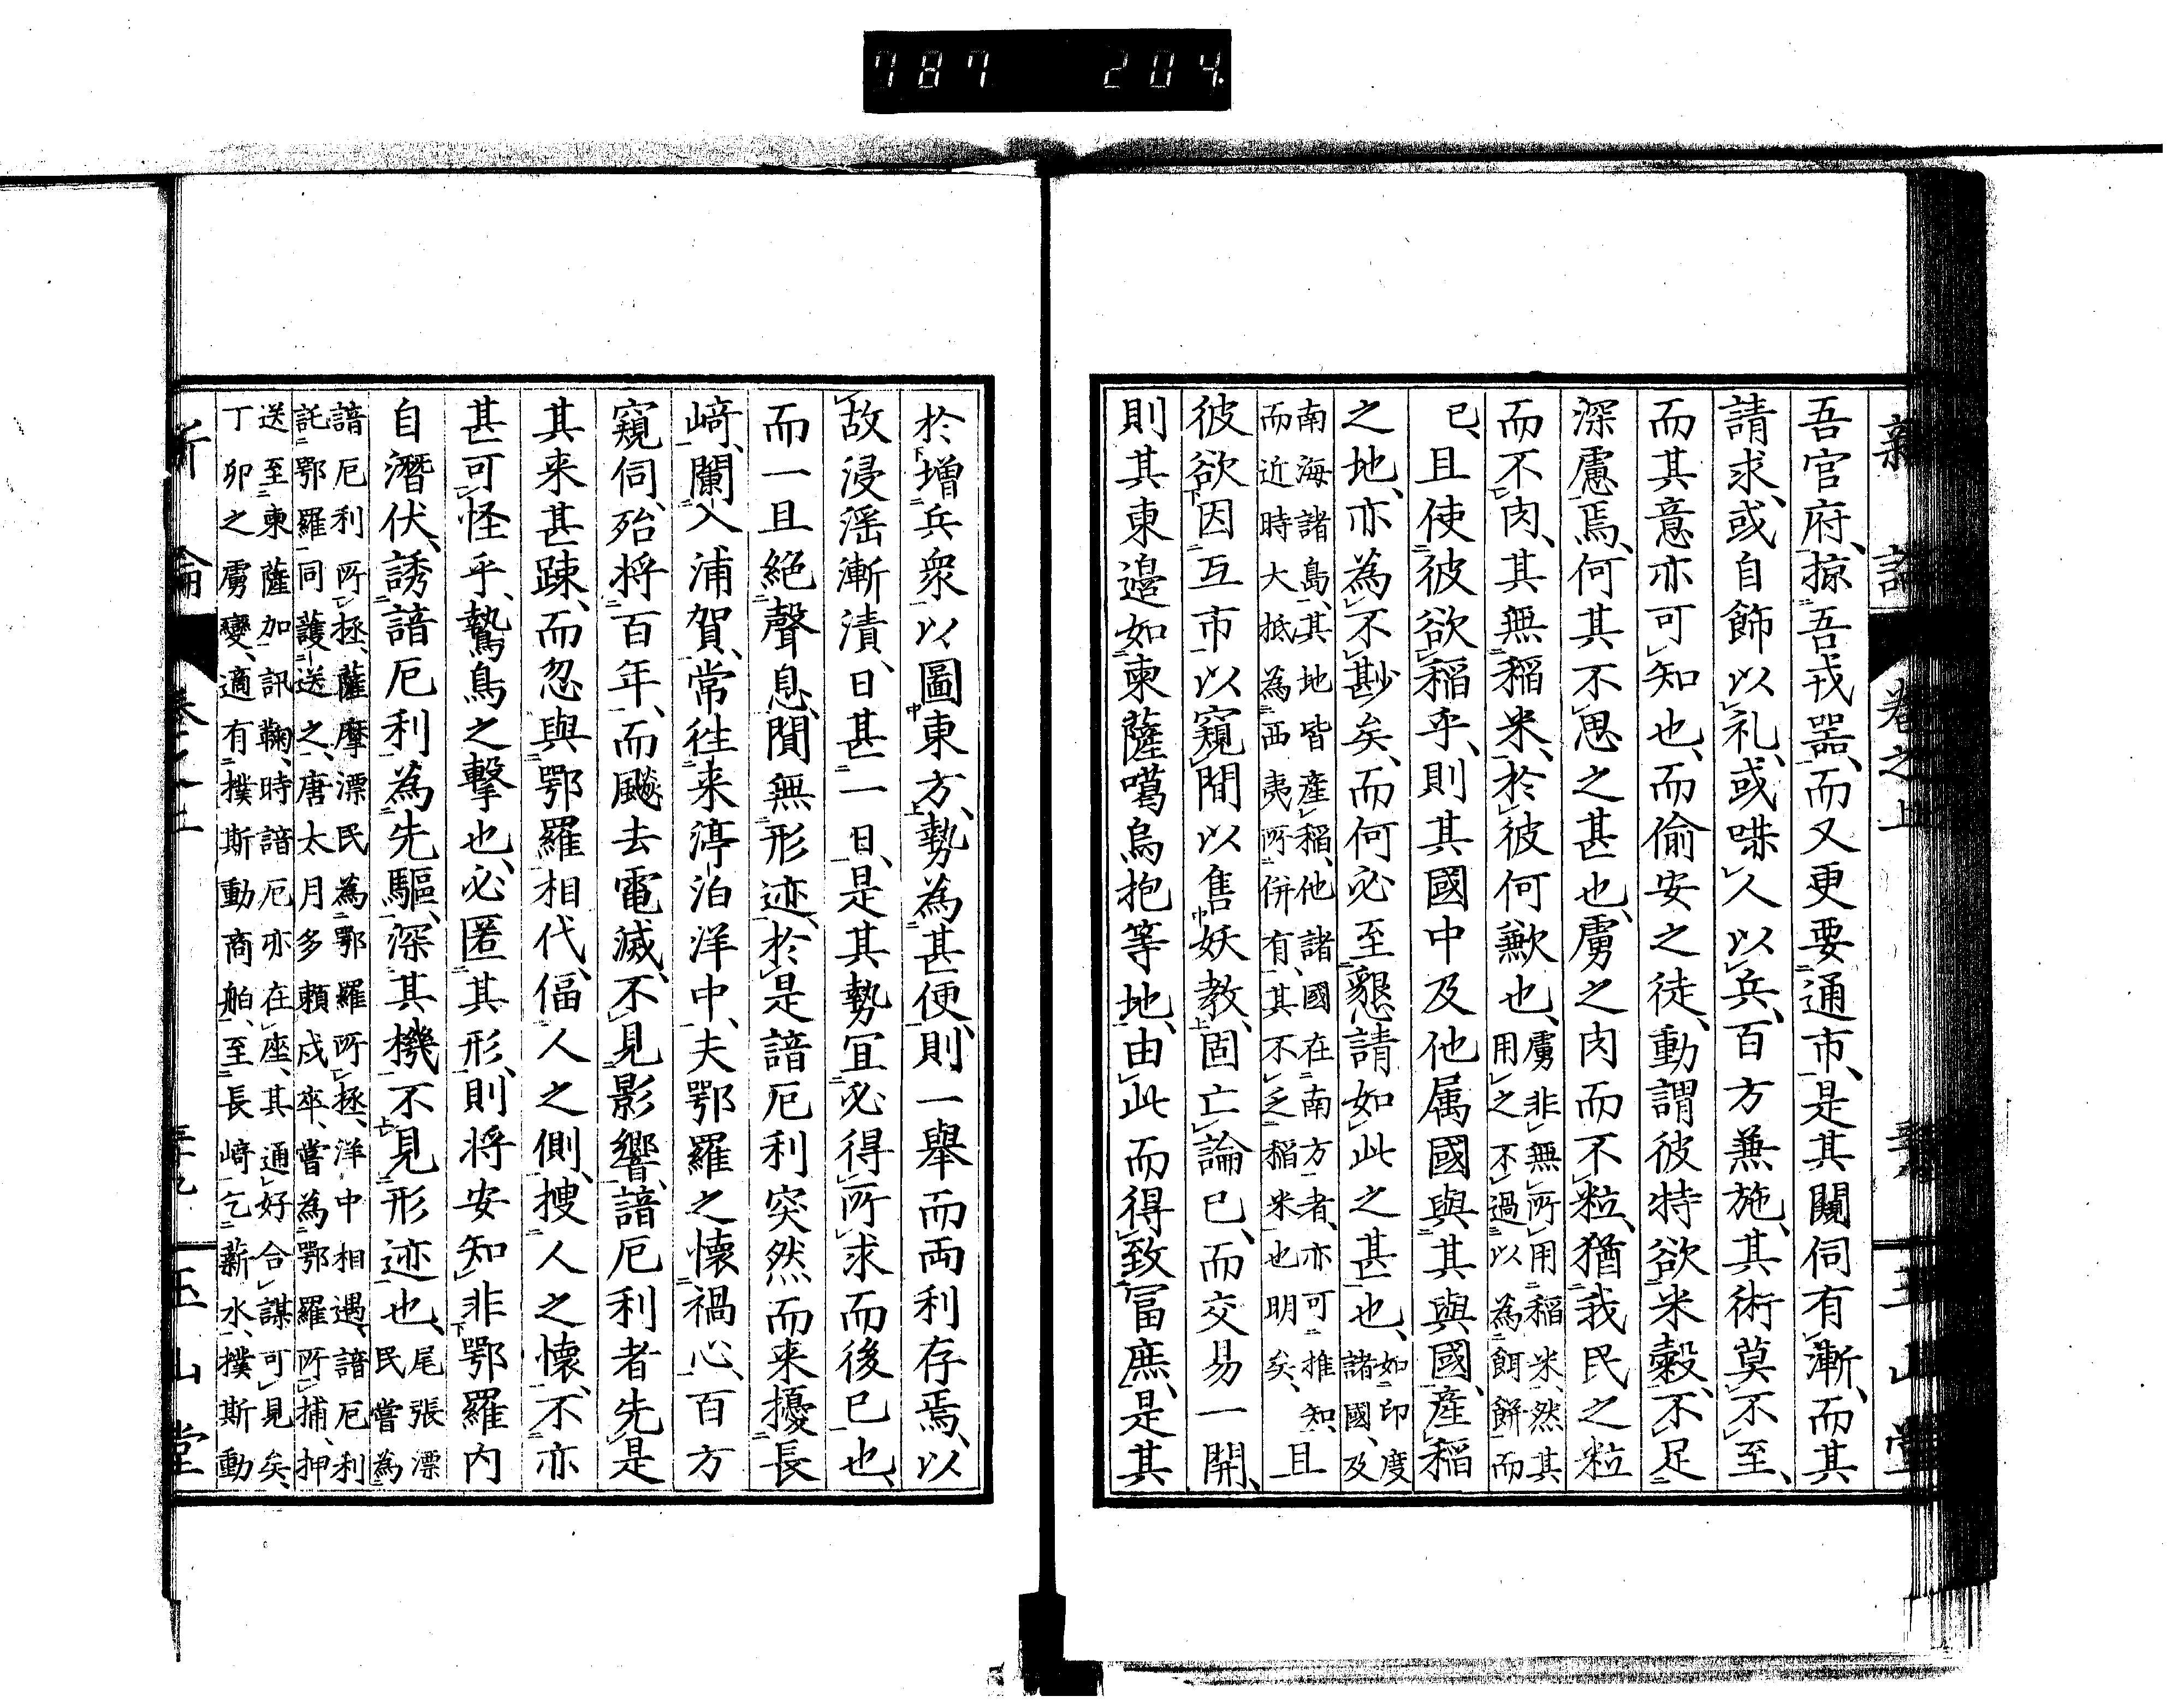 787 204
新論 卷之上 玉山堂
吾官府、掠吾戎器、而又更要通市、是其闚伺有漸、而其
請求、或自飾以礼、或㗖人以兵、百方兼施、其術莫不至、
而其意亦可知也、而偷安之徒、動謂彼特欲米穀、不足
深慮焉、何其不思之甚也、虜之肉而不粒、猶我民之粒
而不肉、其無稻米、於彼何歉也、虜非無所用稻米、然其
用之不過以為餌餅而
已、且使彼欲稻乎、則其國中及他属國與其與國、產稻
之地、亦為不尠矣、而何必至懇請如此之甚也、如印度
諸國、及
南海諸島、其地皆產稻、他諸國在南方者、亦可推知、
而近時大抵為西夷所併有、其不乏稻米也明矣、且
彼欲因互市以窺間以售妖教、固亡論已、而交易一開、
則其東邉如東薩噶烏抱等地、由此而得致冨庶、是其
於增兵衆以圖東方、勢為甚便、則一舉而両利存焉、以
故浸滛漸漬、日甚一日、是其勢冝必得所求而後已也、
而一旦絕聲息、閴無形迹、於是諳厄利突然而来擾長
﨑、闌入浦賀、常徃来渟泊洋中、夫鄂羅之懐禍心、百方
窺伺、殆将百年、而飈去電滅、不見影響、諳厄利者先是
其来甚踈、而忽與鄂羅相代、偪人之側、捜人之懐、不亦
甚可怪乎、鷙鳥之擊也、必匿其形、則将安知非鄂羅内
自潛伏、誘諳厄利為先驅、深其機不見形迹也、尾張漂
民嘗為
諳厄利所拯、薩摩漂民為鄂羅所拯、洋中相遇、諳厄利
託鄂羅同護送之、唐太月多賴戍卒、嘗為鄂羅所捕、押
送至東薩加訊鞠、時諳厄亦在座、其通好合謀可見矣、
丁卯之虜變、適有撲斯動商舶、至長﨑乞薪水、撲斯動
新論 卷之上 玉山堂